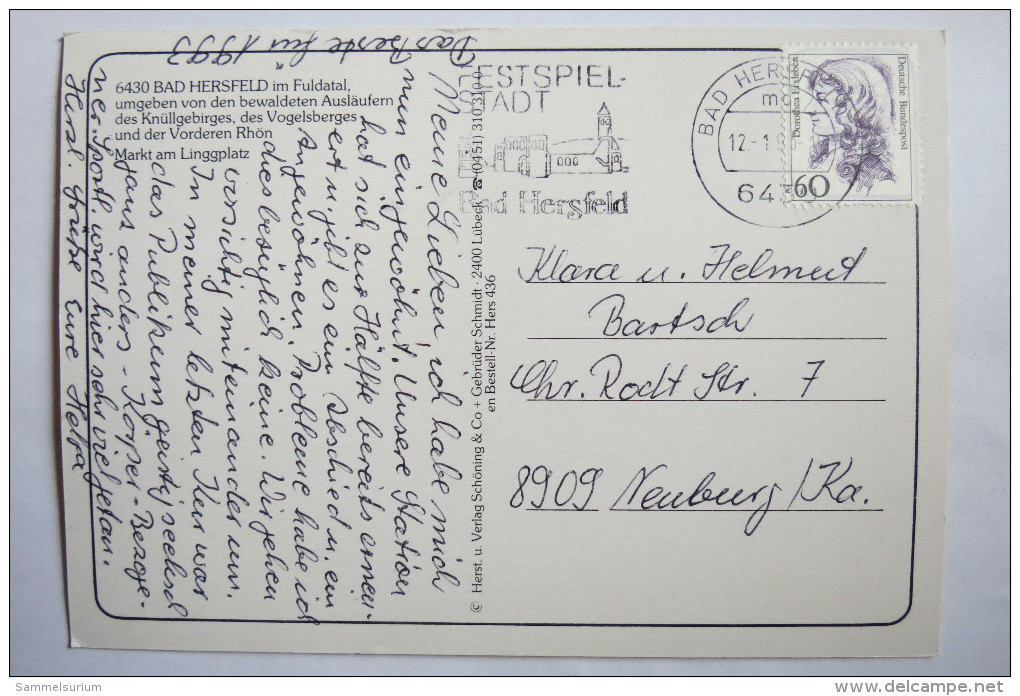 6430 BAD HERSFELD im Fuldatal,
umgeben von den bewaldeten Ausläufern
des Knüllgebirges, des Vogelsberges
und der Vorderen Rhön
Markt am Linggplatz
Das Beste für 1993
Meine Lieben, ich habe mich
nun eingewöhnt. Unsere Station
hat sich zur Hälfte bereits erneu-
ert u. gibt es ein Abschied u. ein
Angewöhnen. Probleme habe ich
diesbezüglich keine. Wir gehen
vorsichtig miteinander um.
In meiner letzten Kur war
das Publikum geistig seelisch
ganz anders - Körper-Bezoge-
ner. Sportl. wird hier sehr viel getan.
Herzl. Grüße Eure Helga
© Herst. u. Verlag Schöning & Co + Gebrüder Schmidt · 2400 Lübeck ☎ (0451) 31 03 10-0
en Bestell-Nr. Hers 436
FESTSPIEL-
STADT
Bad Hersfeld
BAD HERSF
m
12.-1
64
Deutsche Bundespost
Dorothea Erxleben
60
Klara u. Helmut
Bartsch
Chr. Rodt Str. 7
8909 Neuburg/Ka.
Sammelsurium
delcampe.net